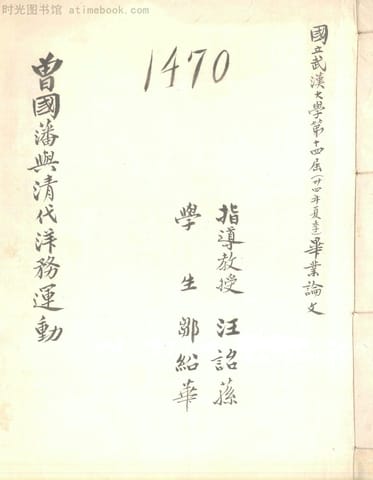 时光图书馆 - atimebook.com
國立武漢大學第十四屆(卅四年夏季)畢業論文
1470
指導教授 汪詒蓀
學生 鄒紹華
曾國藩與清代洋務運動